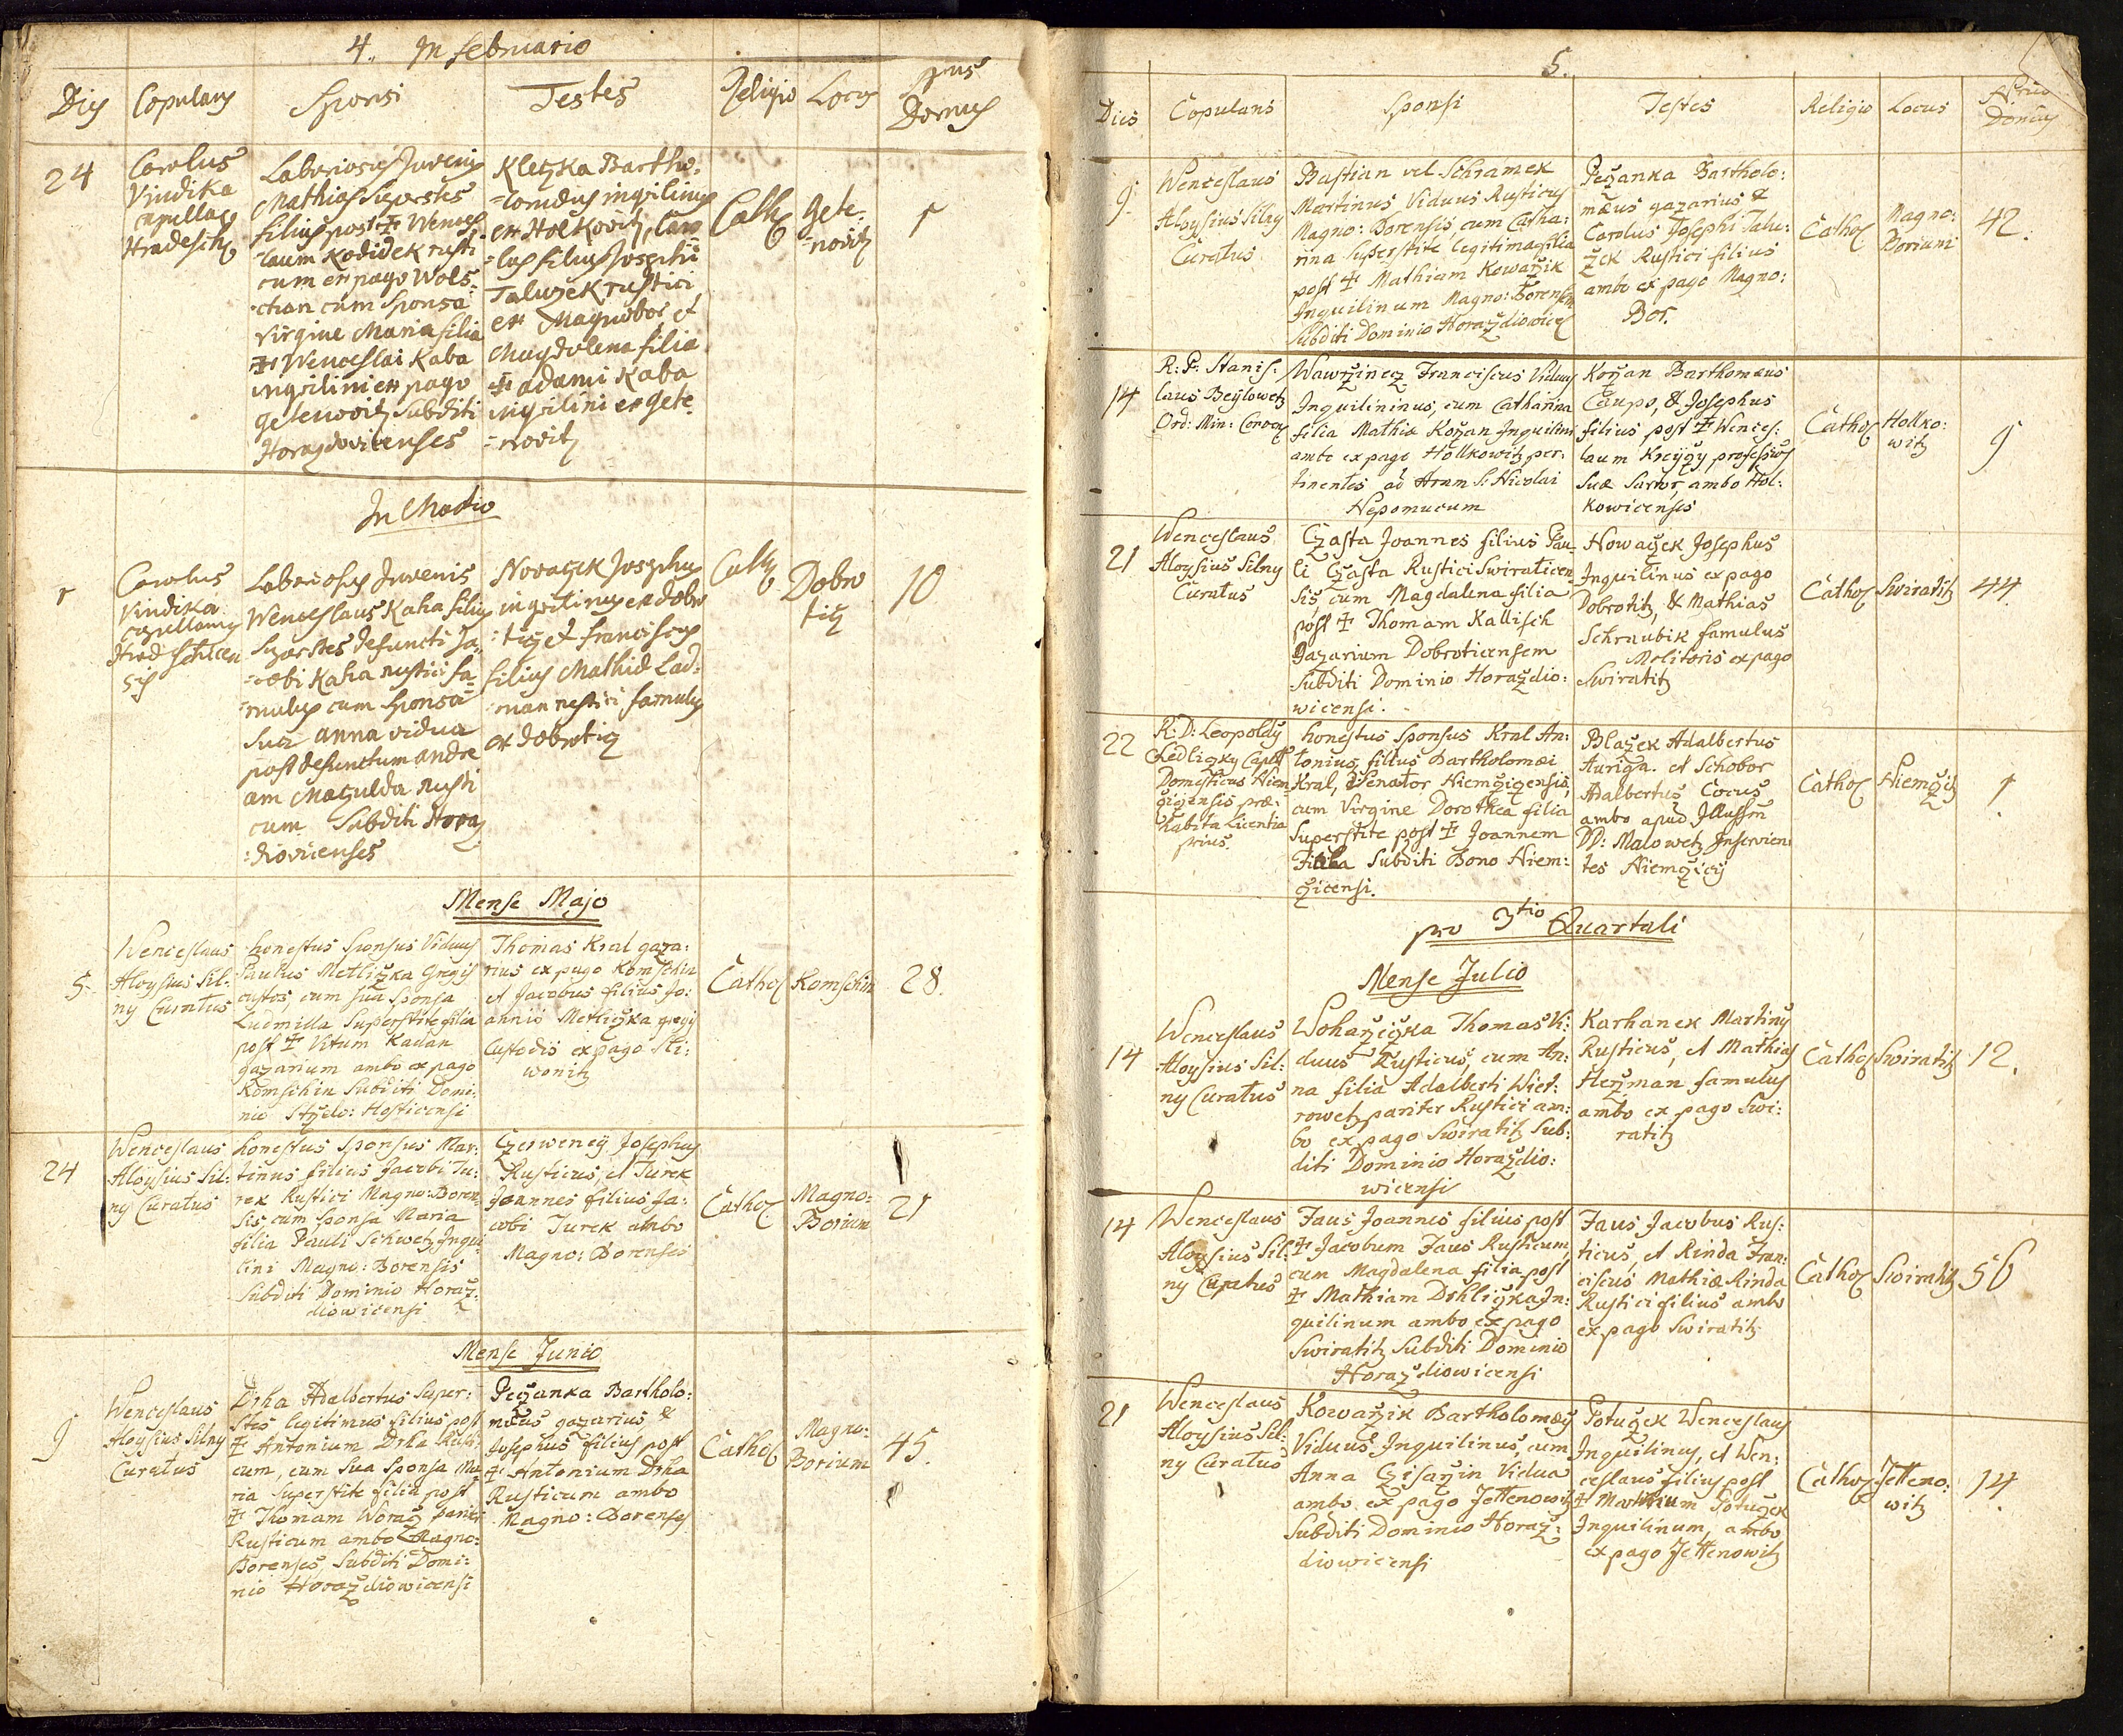 4. In Februario
Dies Copulans Sponsi Testes Religio Locus Nrus Domus
24
Carolus
Vindika
capellanus
Hradeschis
Laboriosus Juvenis
Mathias Superstes
filius post ‡ Wences
laum Kodidek rusti
cum ex pago Wols:
chan cum Sponsa
virgine Maria filia
‡ Wenceslai Kaba
inquilini ex pago
getenovitz Subditi
Horazdovicenses
Kleczka Bartho:
=lomæus inquilinus
ex Holkovitz, Caro
=lus filius Josephi
Taluzek rustici
ex Magnobor et
Magdalena filia
‡ adami Kaba
inquilini ex gete
=novitz
Cath
gete:
=novitz
1
In Martio
1
Carolus
Vindika
capellanus
Hradschicen
sis
Laboriosus Juvenis
Wenceslaus Kaha filius
Superstes defuncti Ja
=cobi Kaha rustici fa
=mulus cum Sponsa
sua anna vidua
post defunctum andre
am Maczulda rusti
cum Subditi Horaz
:diovicenses
Novaczek Josephus
inquilinus ex dobro
:ticz et franciscus
filius Mathiæ Lad:
man rustici famulus
ex dobrticz
Cath
Dobro
ticz
10
Mense Majo
5.
Wenceslaus
Aloysius Sil:
ny Curatus
honestus Sponsus Viduus
Paulus Metliczka Gregis
custos, cum sua Sponsa
Ludmilla Superstite filia
post ‡ Vitum Kadan
gazarium ambo ex pago
Komschin Subditi Domi:
nio Stzelo: Hosticensi
Thomas Kral gaza:
rius ex pago Komschin
et Jacobus filius Jo:
annis Metliczka gregis
Custodis ex pago Sli:
wonitz
Cathol
Komschin
28.
24
Wenceslaus
Aloysius Sil:
ny Curatus
honestus Sponsus Mar:
tinus filius Jacobi Tu:
rek Rustici Magno: Boren
sis, cum Sponsa Maria
filia Pauli Schwetz Inqui
lini Magno: Borensis
Subditi Dominio Horaž:
diowicensi
Czerweney Josephus
Rusticus, et Turek
Joannes filius Ja:
cobi Turek ambo
Magno: Borenses
Cathol
Magno:
Borium
21
Mense Junio
9
Wenceslaus
Aloysius Silny
Curatus
Drha Adalbertus Super:
stes legitimus filius post
‡ Antonium Drha Rusti:
cum, cum Sua Sponsa Ma:
ria Superstite filia post
‡ Thomam Woraž pariter
Rusticum ambo Magno:
Borenses, Subditi Domi:
nio Horaždiowicensi
Peczanka Bartholo:
mæus gazarius &
Josephus filius post
‡ Antonium Drha
Rusticum ambo
Magno: Borenses
Cathol
Magno:
Borium
45.
5.
Dies Copulans Sponsi Testes Religio Locus Nrus Domus
9.
Wenceslaus
Aloysius Silny
Curatus
Bastian vel Schramek
Martinus Viduus Rusticus
Magno: Borensis cum Catha:
rina Superstite legitima filia
post ‡ Mathiam Kowařik
Inquilinum Magno: Borensem
Subditi Dominio Horaždiowicen
Pečanka Bartholo:
mæus gazarius &
Carolus Josephi Talu:
žek Rustici filius
ambo ex pago Magno:
Bor.
Cathol
Magno:
Borium
42.
14
R: P: Stanis:
laus Beylowetz
Ord: Min: Conv
Wawržinecz Franciscus Viduus
Inquilininus, cum Catharina
filia Mathiæ Kožan Inquilini
ambo ex pago Holkowitz per:
tinentes ad Aram S: Nicolai
Nepomucum
Kožan Barthomæus
Caupo, & Josephus
filius post ‡ Wences:
laum Kreyzy professione
Suæ Sartor, ambo Hol:
kowicenses
Cathol
Holko:
witz
9
21
Wenceslaus
Aloysius Silny
Curatus
Czasta Joannes filius Pau
li Czasta Rustici Swiraticen
sis, cum Magdalena filia
post ‡ Thomam Kallisch
Gazarium Dobroticensem
Subditi Dominio Horaždio:
wicensi.
Nowaczek Josephus
Inquilinus ex pago
Dobrotitz, & Mathias
Schraubik famulus
Molitoris ex pago
Swiratitz
Cathol
Swiratitz
44.
22
R: D: Leopoldus
Ledliczky Capell
Domesticus Niem
cziczensis præ:
habita Licentia
prius.
honestus Sponsus Kral An:
tonius, filius Bartholomæi
Kral, Senator Niemcziczensis,
cum Virgine Dorothea filia
Superstite post ‡ Joannem
Subditi Bono Niem:
czicensi.
Blažek Adalbertus
Auriga. et Schobor
Adalbertus Cocus
ambo apud Illussm
DD: Malowetz Inservien
tes Niemczicij
Cathol
Niemczitz
1
pro 3tio Quartali
Mense Julio
14
Wenceslaus
Aloysius Sil:
ny Curatus
Wohařeczka Thomas Vi:
duus Rusticus, cum An:
na filia Adalberti Wiet:
rowetz pariter Rustici am:
bo ex pago Swiratitz Sub:
diti Dominio Horaždio:
wicensi
Karhanek Martinus
Rusticus, et Mathias
Heržman famulus
ambo ex pago Swi:
ratitz
Cathol
Swiratitz
12.
14
Wenceslaus
Aloysius Sil:
ny Curatus
Faus Joannes filius post
‡ Jacobum Faus Rusticum
cum Magdalena filia post
‡ Mathiam Drhliczka In:
quilinum ambo ex pago
Swiratitz Subditi Dominio
Horaždiowicensi
Faus Jacobus Rus:
ticus, et Rinda Fran:
ciscus Mathiæ Rinda
Rustici filius ambo
ex pago Swiratitz
Cathol
Swiratitz
56
21
Wenceslaus
Aloysius Sil:
ny Curatus
Kowařik Bartholomæus
Viduus Inquilinus, cum
Anna Czisařin Vidua
ambo ex pago Jettenowitz
Subditi Dominio Horaž:
diowicensi
Potužek Wenceslaus
Inquilinus, et Wen:
ceslaus filius post
‡ Martinum Potužek
Inquilinum, ambo
ex pago Jettenowitz
Cathol
Jetteno:
witz
14.